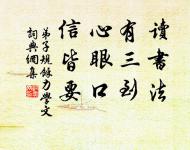 讀書法
有三到
心眼口
信皆要
弟子規餘力學文
詞典網集